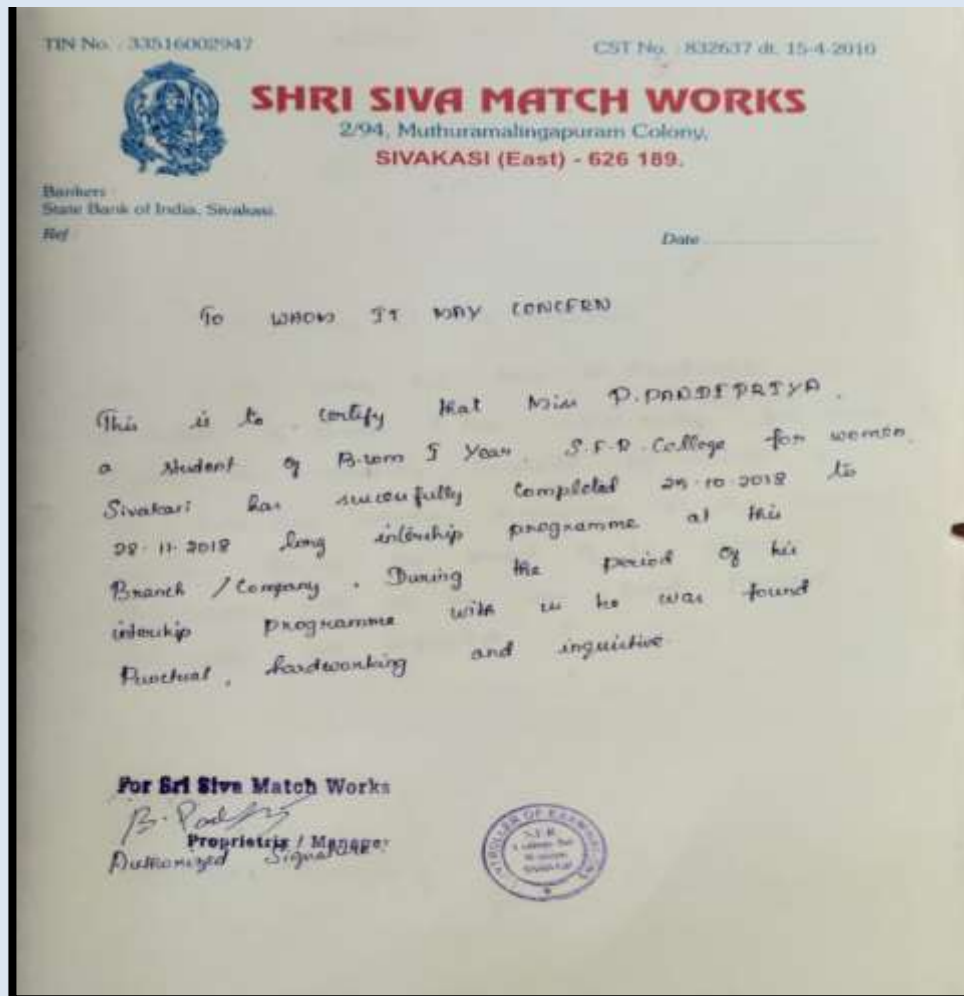 TIN No. : 33516002947
CST No. : 832637 dt. 15-4-2010
SHRI SIVA MATCH WORKS
2/94, Muthuramalingapuram Colony,
SIVAKASI (East) - 626 189.
Bankers :
State Bank of India, Sivakasi.
Ref
Date
To WHOM IT MAY CONCERN
This is to certify that Miss P. PANDIPRIYA.
a student of B.com I Year S.F.R. College for women
Sivakasi has successfully completed 2018 to
28.11.2018 long intership programme at this
Branch / Company. During the period of his
intership programme with us he was found
Punctual, hardworking and inquistive
For Sri Siva Match Works
Proprietrix / Manager
Authorized Signature
CONTROLLER OF EXAMINATIONS